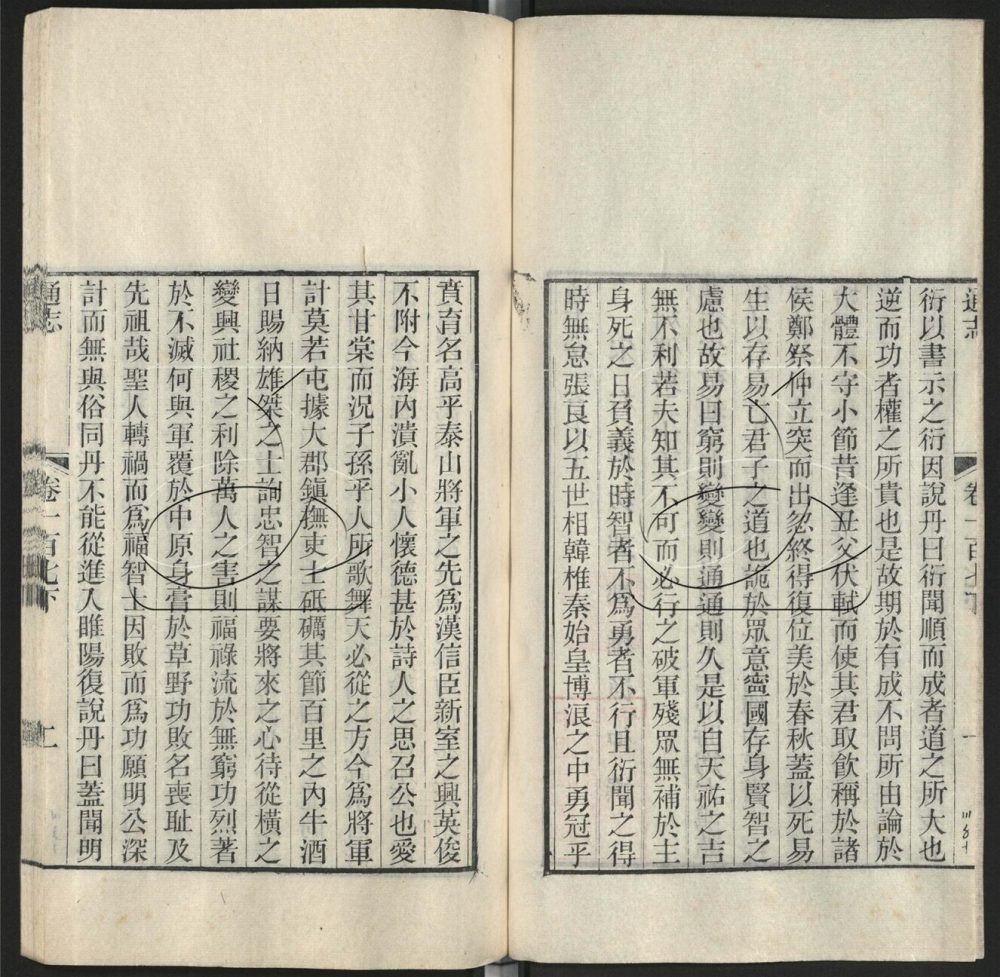 通志
卷一百七下
一
衍以書示之衍因說丹曰衍聞順而成者道之所大也
逆而功者權之所貴也是故期於有成不問所由論於
大體不守小節昔逢丑父伏軾而使其君取飲稱於諸
侯鄭祭仲立突而出忽終得復位美於春秋蓋以死易
生以存易亡君子之道也詭於眾意寧國存身賢智之
慮也故易曰窮則變變則通通則久是以自天祐之吉
無不利若夫知其不可而必行之破軍殘眾無補於主
身死之日負義於時智者不爲勇者不行且衍聞之得
時無怠張良以五世相韓椎秦始皇博浪之中勇冠乎
賁育名高乎泰山將軍之先爲漢信臣新室之興英俊
不附今海內潰亂小人懷德甚於詩人之思召公也愛
其甘棠而況子孫乎人所歌舞天必從之方今爲將軍
計莫若屯據大郡鎮撫吏士砥礪其節百里之內牛酒
日賜納雄桀之士詢忠智之謀要將來之心待從橫之
變興社稷之利除萬人之害則福祿流於無窮功烈著
於不滅何與軍覆於中原身膏於草野功敗名喪恥及
先祖哉聖人轉禍而爲福智士因敗而爲功願明公深
計而無與俗同丹不能從進入睢陽復說丹曰蓋聞明
通志
卷一百七下